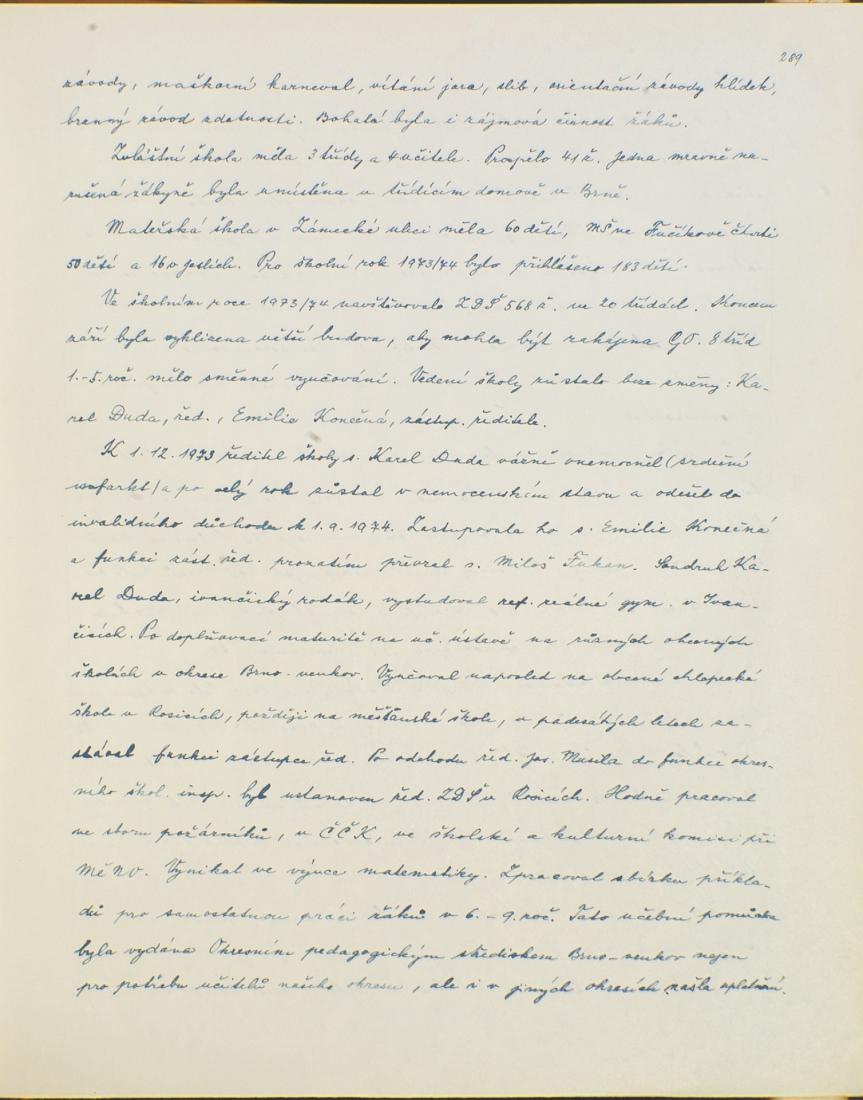 289
závody, maškarní karneval, vítání jara, slib, orientační závody hlídek,
branný závod zdatnosti. Bohatá byla i zájmová činnost žáků.
Zvláštní škola měla 3 třídy a 4 učitele. Prospělo 41 ž. Jedna mravně na-
rušená žákyně byla umístěna v třídícím domově v Brně.
Mateřská škola v Zámecké ulici měla 60 dětí, MŠ ve Fučíkově čtvrti
50 dětí a 16 v jeslích. Pro školní rok 1973/74 bylo přihlášeno 183 dětí.
Ve školním roce 1973/74 navštěvovalo ZDŠ 568 ž. ve 20 třídách. Koncem
září byla vyklizena větší budova, aby mohla být zahájena GO. 8 tříd
1.-5. roč. mělo směnné vyučování. Vedení školy zůstalo beze změny: Ka-
rel Duda, řed., Emilie Konečná, zástup. ředitele.
K 1. 12. 1973 ředitel školy s. Karel Duda vážně onemocněl (srdeční
infarkt) a po celý rok zůstal v nemocenském stavu a odešel do
invalidního důchodu k 1. 9. 1974. Zastupovala ho s. Emilie Konečná
a funkci zást. řed. prozatím převzal s. Miloš Fukan. Soudruh Ka-
rel Duda, ivančický rodák, vystudoval ref. reálné gym. v Ivan-
čicích. Po doplňovací maturitě na uč. ústavě na různých obecných
školách v okrese Brno-venkov. Vyučoval naposled na obecné chlapecké
škole v Rosicích, později na měšťanské škole, v padesátých letech za-
stával funkci zástupce řed. Po odchodu řed. Jos. Musila do funkce okres-
ního škol. insp. byl ustanoven řed. ZDŠ v Rosicích. Hodně pracoval
ve sboru požárníků, v ČČK, ve školské a kulturní komisi při
MěNV. Vynikal ve výuce matematiky. Zpracoval sbírku příkla-
dů pro samostatnou práci žáků v 6. - 9. roč. Tato učební pomůcka
byla vydána Okresním pedagogickým střediskem Brno-venkov nejen
pro potřebu učitelů našeho okresu, ale i v jiných okresích našla uplatnění.